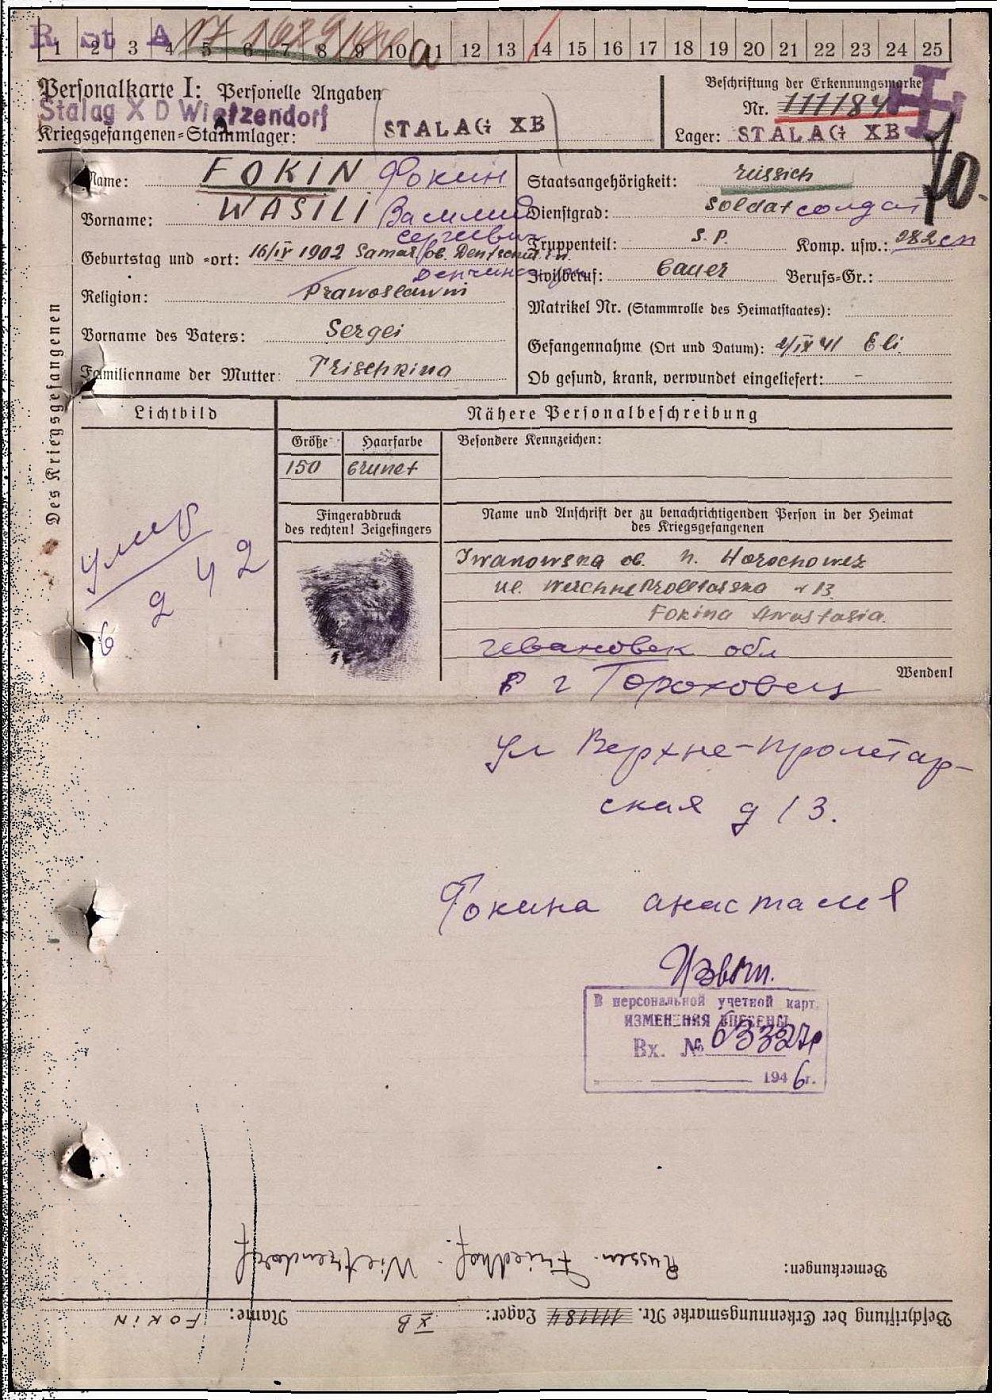 R st A
1 2 3 4 5 6 7 8 9 10 11 12 13 14 15 16 17 18 19 20 21 22 23 24 25
Personalkarte I: Personelle Angaben
Stalag X D Wietzendorf
Kriegsgefangenen-Stammlager: STALAG XB
Beschriftung der Erkennungsmarke
Nr. 111184
Lager: STALAG XB
70.
Des Kriegsgefangenen
Name: FOKIN Фокин
Vorname: WASILI Василий
Сергеевич
Geburtstag und -ort: 16/IV 1902 Samar. ob.
Religion: Prawoslawni
Vorname des Vaters: Sergei
Familienname der Mutter: Trischkina
Staatsangehörigkeit: rüssich
Dienstgrad: Soldat солдат
Truppenteil: S.P. Komp. usw.: 982
Zivilberuf: Bauer Berufs-Gr.:
Matrikel Nr. (Stammrolle des Heimatstaates):
Gefangennahme (Ort und Datum): IX 41
Ob gesund, krank, verwundet eingeliefert: –
Lichtbild
умер
2 42
6
Nähere Personalbeschreibung
Größe Haarfarbe Besondere Kennzeichen:
150 brunet
Fingerabdruck
des rechten! Zeigefingers
Name und Anschrift der zu benachrichtigenden Person in der Heimat
des Kriegsgefangenen
Iwanowska ob. n. Horochowez
ul. Werchne Proletarska 13
Fokina Anastasia.
Ивановск обл
г Гороховец
Wenden!
ул Верхне-пролетар-
ская д 13.
Фокина анастасия
Извещ.
В персональной учетной карт.
ИЗМЕНЕНИЯ ВНЕСЕНЫ
Вх. № 63327
1946г.
Bemerkungen:
Russen. Friedhof. Wietzendorf
Beschriftung der Erkennungsmarke Nr. 111184 Lager: XB Name: FOKIN